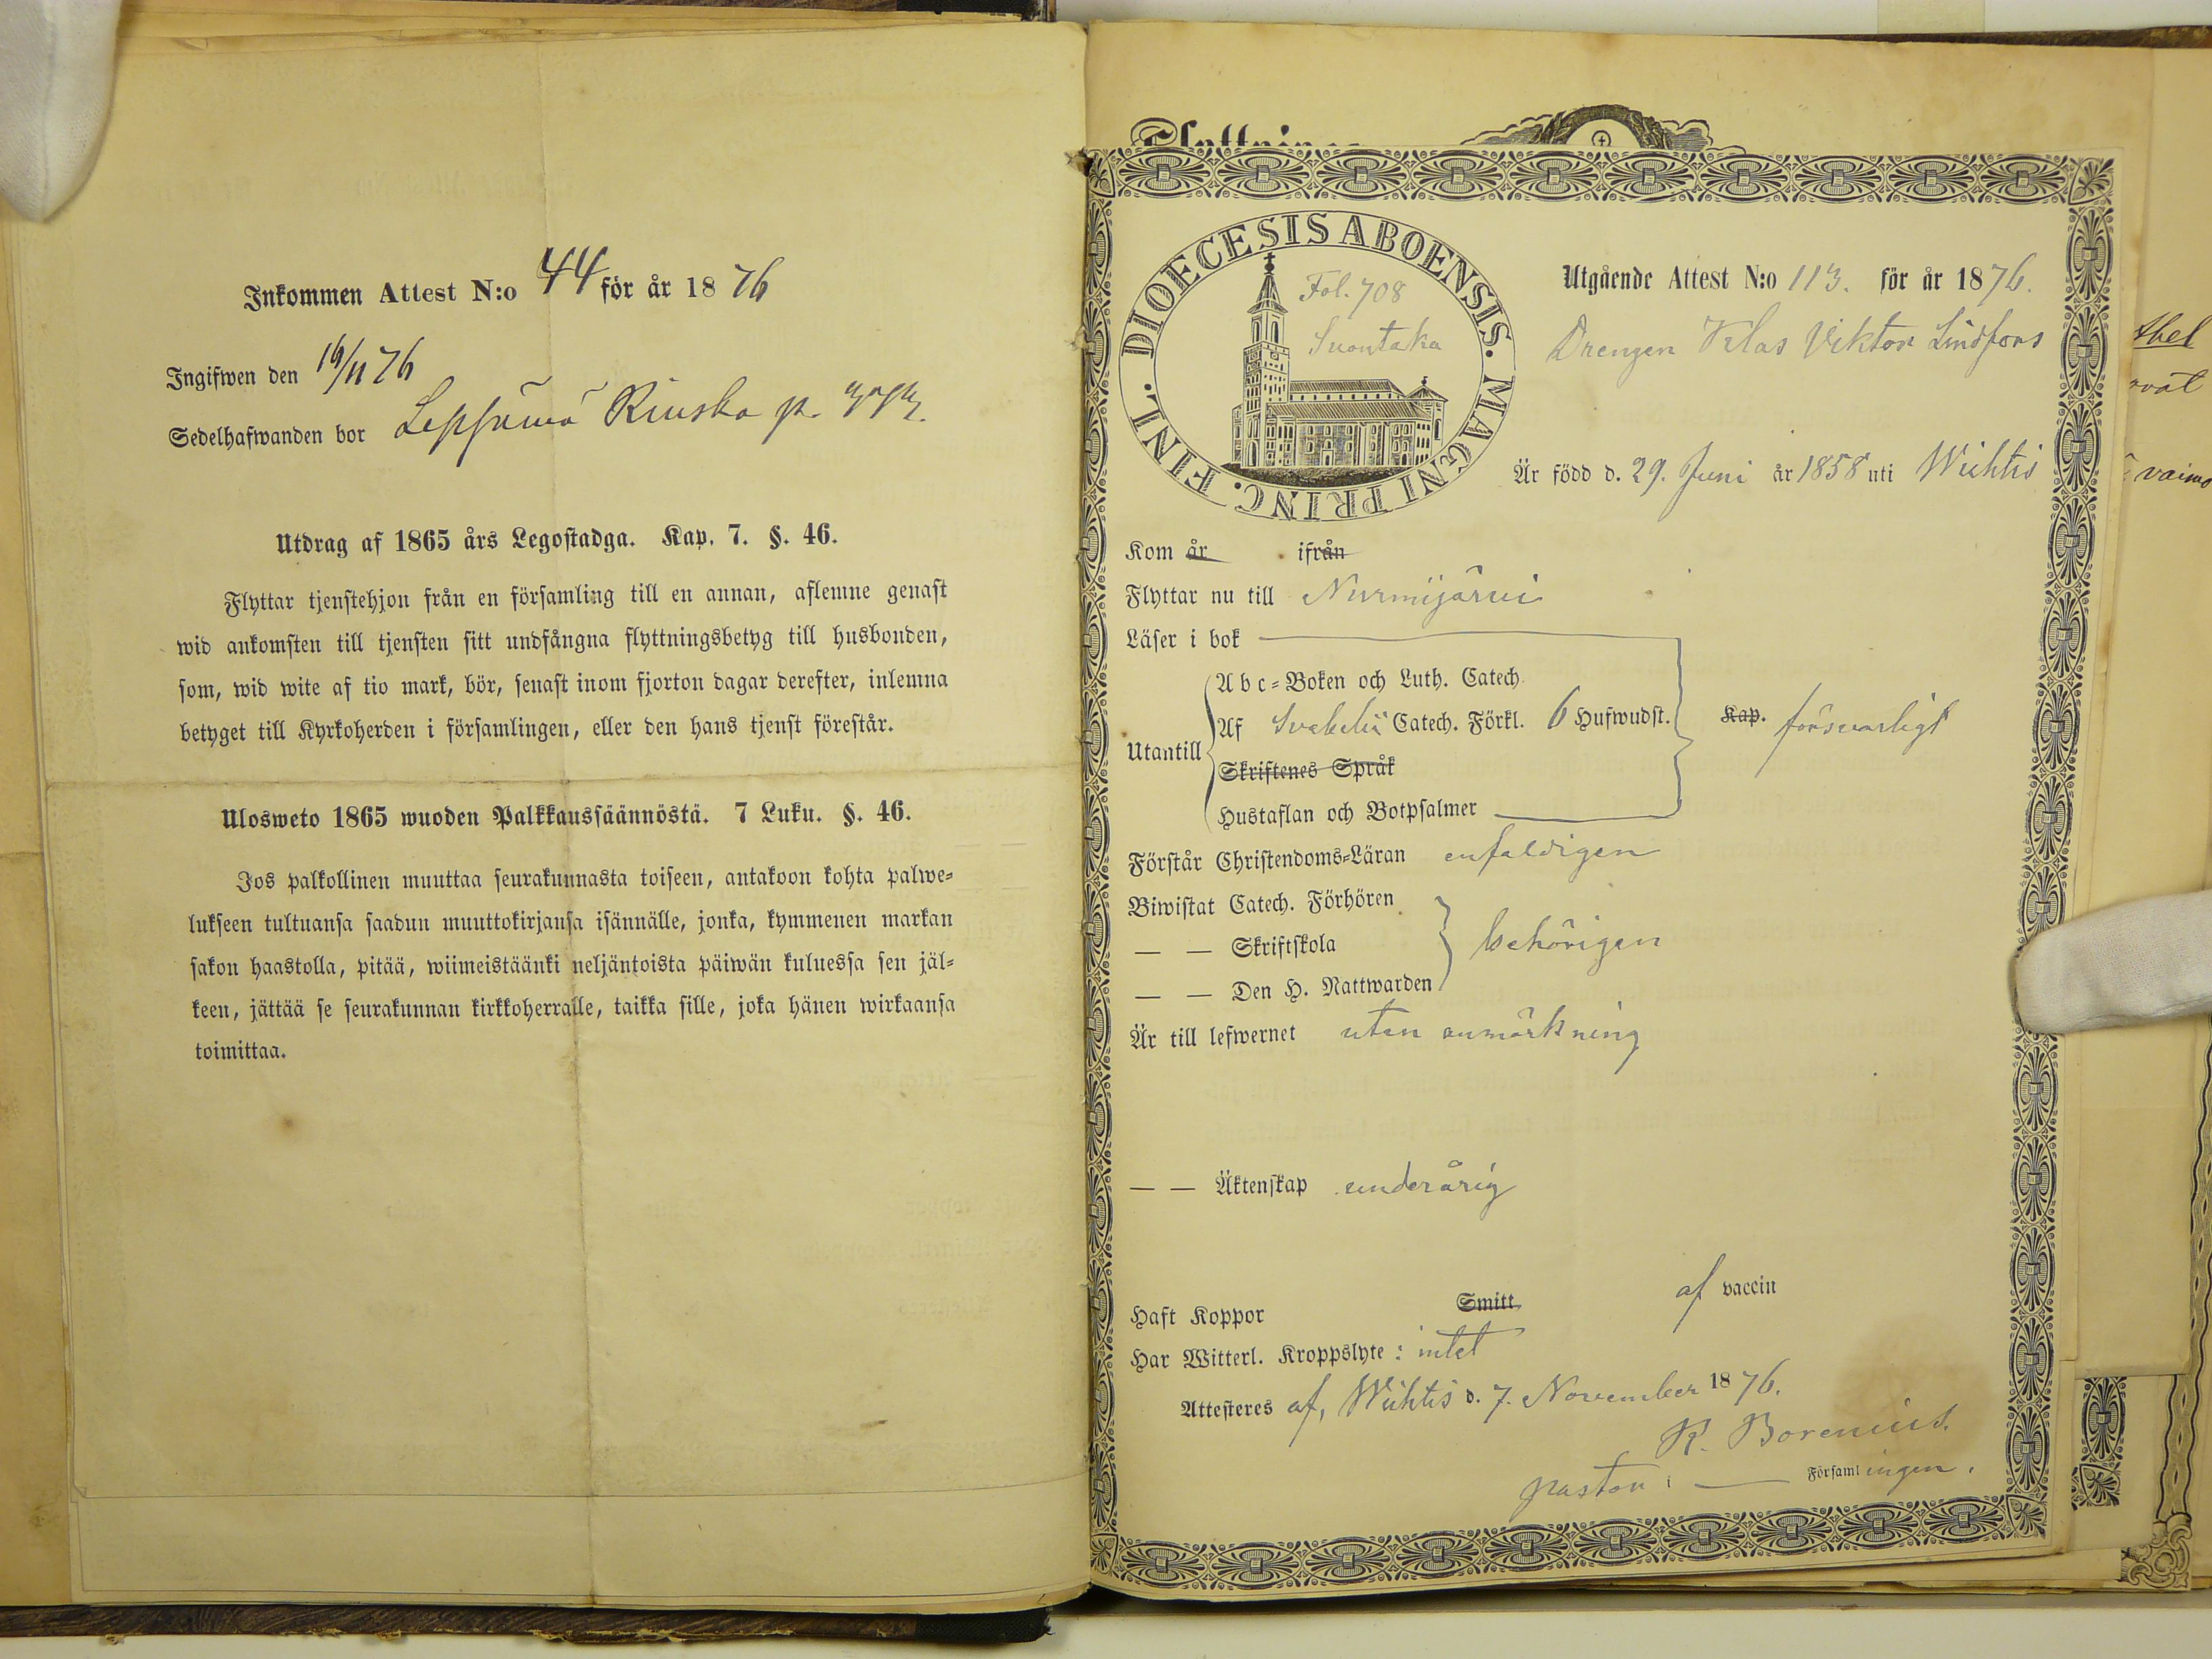 Inkommen Attest N:o 44 för år 1876
Ingifwen den 16/11 76
Sedelhafwanden bor Leppämä Riuska p.
Utdrag af 1865 års Legostadga. Kap. 7. §. 46.
Flyttar tjenstehjon från en församling till en annan, aflemne genast
wid ankomsten till tjensten sitt undfångna flyttningsbetyg till husbonden,
som, wid wite af tio mark, bör, senast inom fjorton dagar derefter, inlemna
betyget till Kyrkoherden i församlingen, eller den hans tjenst förestår.
Ulosweto 1865 wuoden Palkkaussäännöstä. 7 Luku. §. 46.
Jos palkollinen muuttaa seurakunnasta toiseen, antakoon kohta palwe-
lukseen tultuansa saadun muuttokirjansa isännälle, jonka, kymmenen markan
sakon haastolla, pitää, wiimeistäänki neljäntoista päiwän kuluessa sen jäl-
keen, jättää se seurakunnan kirkkoherralle, taikka sille, joka hänen wirkaansa
toimittaa.
Flyttnings
DIOECESIS ABOENSIS. MAGNI PRINC. FINL.
Fol. 708
Suontaka
Utgående Attest N:o 113. för år 1876.
Drengen Klas Viktor Lindfors
Är född d. 29. Juni år 1858 uti Wichtis
Kom år ifrån
Flyttar nu till Nurmijärvi
Läser i bok
Abc-Boken och Luth. Catech.
Utantill
Af Svebelii Catech. Förkl. 6 Hufwudst. Kap. försvarligt
Skriftenes Språk
Hustaflan och Botpsalmer
Förstår Christendoms-Läran enfaldigen
Biwistat Catech. Förhören
— — Skriftskola behörigen
— — Den H. Nattwarden
Är till lefwernet utan anmärkning
— — Äktenskap underårig
Haft Koppor Smitt af vaccin
Har Witterl. Kroppslyte: intet
Attesteres af, Wichtis d. 7. November 1876.
R. Borenius.
pastor i — Församlingen.
thel
vat
vaimo